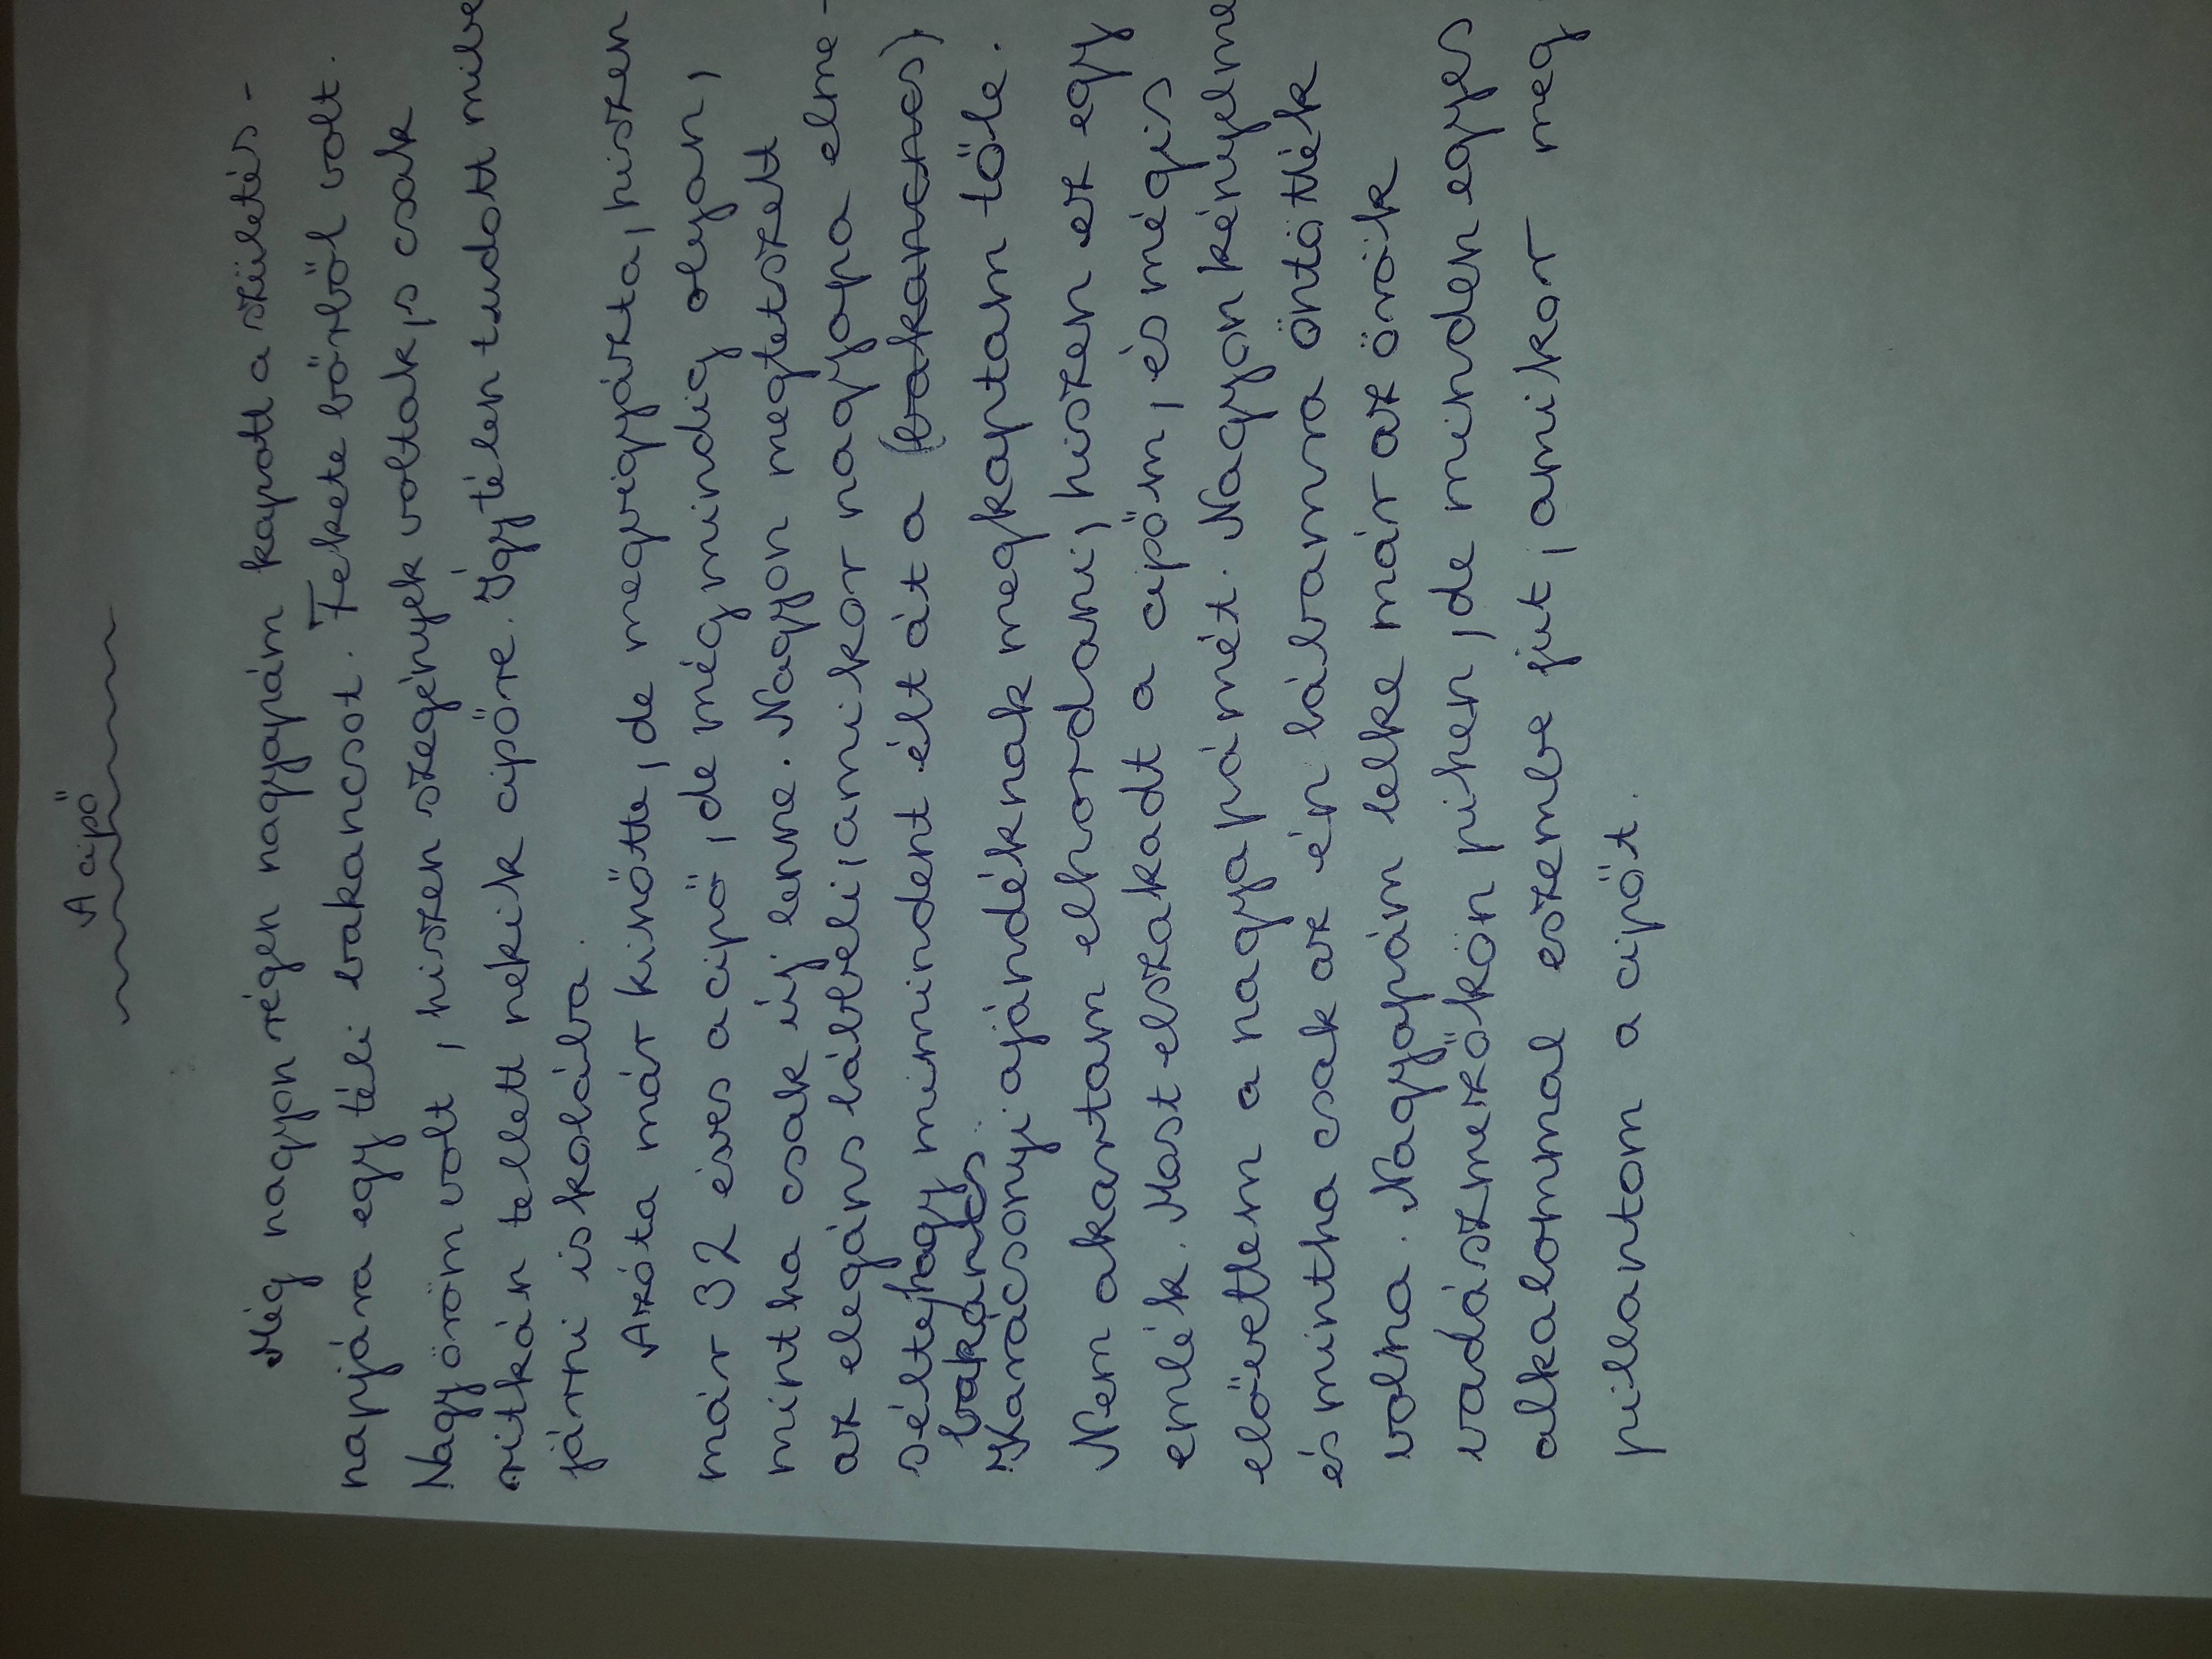 A cipő
Még nagyon régen nagyapám kapott a születés-
napjára egy téli bakancsot. Fekete bőrből volt.
Nagy öröm volt, hiszen szegények voltak, s csak
ritkán tellett nekik cipőre. Így télen tudott mibe
járni iskolába.
Azóta már kinőtte, de megvigyázta, hiszen
már 32 éves a cipő, de még mindig olyan,
mintha csak új lenne. Nagyon megtetszett
az elegáns lábbeli, amikor nagyapa elme-
sélte, hogy mi mindent élt át a (bakancs)
bakancs.
Karácsonyi ajándéknak megkaptam tőle.
Nem akartam elhordani, hiszen ez egy
emlék. Most elszakadt a cipőm, és mégis
elővettem a nagyapámét. Nagyon kényelme
és mintha csak az én lábamra öntötték
volna. Nagyapám lelke már az örök
vadászmezőkön pihen, de minden egyes
alkalommal eszembe jut, amikor meg-
pillantom a cipőt.